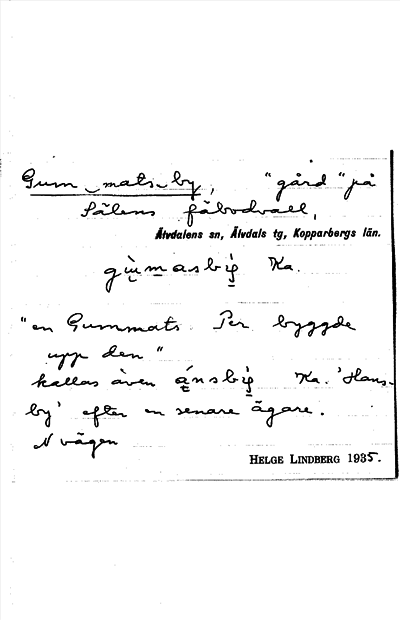 Gum_mats_by, "gård" på
Sälens fäbodvall,
Älvdalens sn, Älvdals tg, Kopparbergs län.
Ka.
"en Gummats Per byggde
upp den"
kallas även Ka. 'Hans-
by' efter en senare ägare.
N vägen
HELGE LINDBERG 1935.